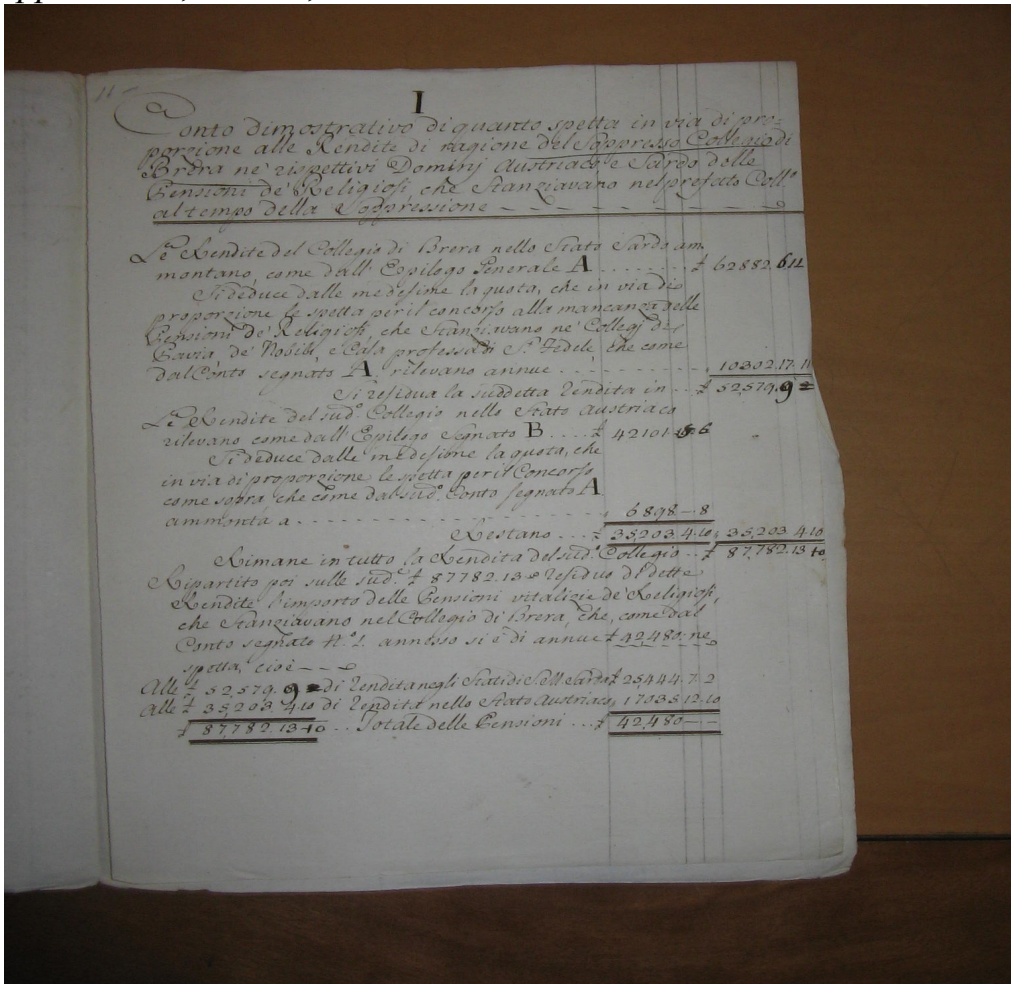 11 -
I
Conto dimostrativo di quanto spetta in via di pro=
porzione alle Rendite di ragione del Soppresso Collegio di
Brera ne' rispettivi Dominj Austriaco e Sardo delle
Pensioni de' Religiosi che stanziavano nel prefato Coll.o
al tempo della Soppressione
Le Rendite del Collegio di Brera nello Stato Sardo am=
montano, come dall' Epilogo Generale A ........ £ 62882. 6 11
Si deduce dalle medesime la quota, che in via di
proporzione le spetta per il concorso alla mancanza delle
Pensioni de' Religiosi, che stanziavano ne' Collegj di
Pavia, de' Nobili, e Casa professa di S. Fedele, che come
dal Conto segnato A rilevano annue ........ 10302. 17. 11
Si residua la suddetta Rendita in .. £ 52,579. 9 =
Le Rendite del sud.o Collegio nello Stato Austriaco
rilevano come dall' Epilogo Segnato B .... £ 42101. 5. 6
Si deduce dalle medesime la quota, che
in via di proporzione le spetta per il Concorso
come sopra, che come dal sud.o Conto segnato A
ammonta a .......... 6898 - 8
Restano ... £ 35,203. 4. 10 35,203. 4. 10
Rimane in tutto la Rendita del sud.o Collegio .. £ 87,782. 13 10
Ripartito poi sulle sud.e £ 87782. 13 residuo di dette
Rendite l'importo delle Pensioni vitalizie de' Religiosi,
che stanziavano nel Collegio di Brera, che, come dal
Conto segnato N.o annesso si è di annue £ 42,480. ne
spetta, cioè
Alle £ 52,579. 9 = di Rendita negli Stati di S. M. Sarda £ 25444. 7. 2
Alle £ 35,203 4. 10 di Rendita nello Stato Austriaco, 17035. 12. 10
£ 87,782. 13 10 .. Totale delle Pensioni ... £ 42,480 - -